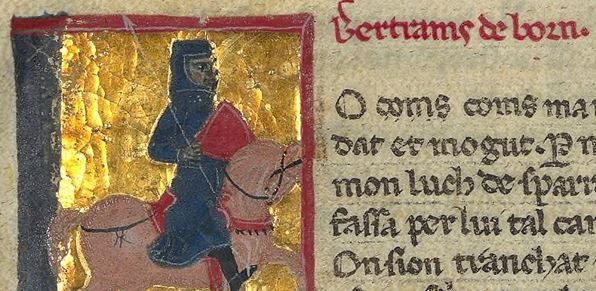 Bertrams de born.
O coms coms man
dat et mogut. P n
mon luch de sparr
fassa per lui tal can
On sion tranchat